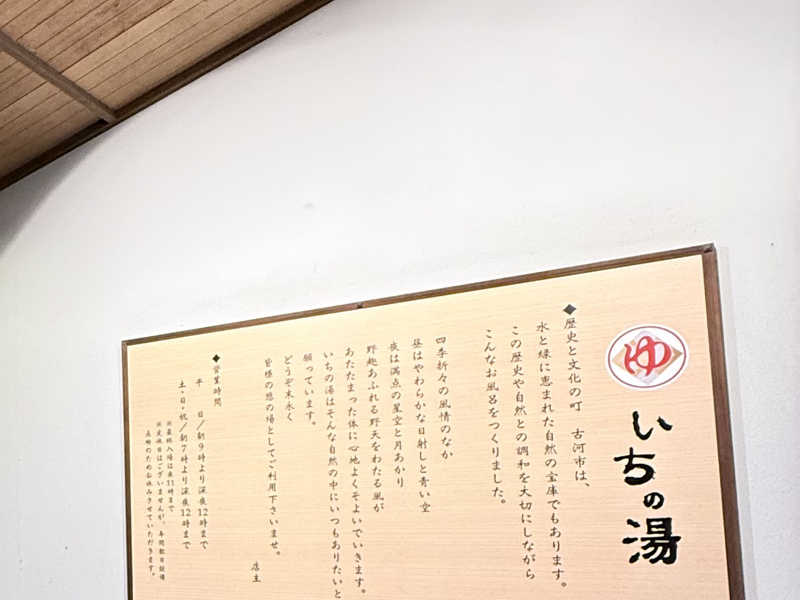 ゆ
いちの湯
◆歴史と文化の町　古河市は、
水と緑に恵まれた自然の宝庫でもあります。
この歴史や自然との調和を大切にしながら
こんなお風呂をつくりました。
四季折々の風情のなか
昼はやわらかな日射しと青い空
夜は満点の星空と月あかり
野趣あふれる野天をわたる風が
あたたまった体に心地よくそよいでいきます。
いちの湯はそんな自然の中にいつもありたいと
願っています。
どうぞ末永く
皆様の憩の場としてご利用下さいませ。
店主
◆営業時間
平　日／朝9時より深夜12時まで
土・日・祝／朝7時より深夜12時まで
※最終入場は夜11時まで
※定休日はございませんが、年間数日設備
点検のためお休みさせていただきます。